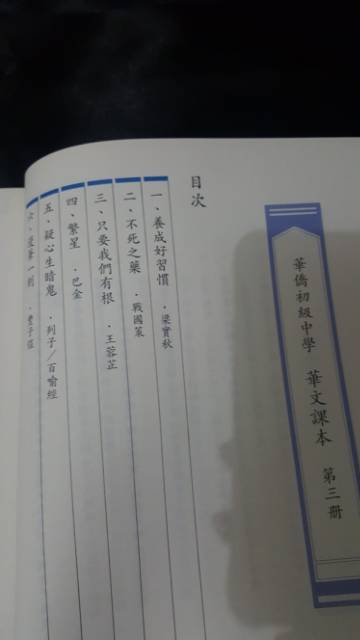 華僑初級中學 華文課本 第三冊
目次
一、養成好習慣 ．梁實秋
二、不死之藥 ．戰國策
三、只要我們有根 ．王蓉芷
四、繁星 ．巴金
五、疑心生暗鬼 ．列子／百喻經
六、